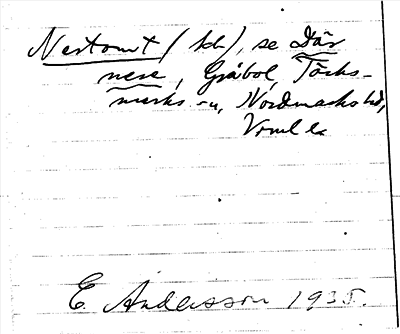 Nertomt (sdr), se Där
nere, Gråbol, Töcks-
marks sn, Nordmarks hd,
Vrml ls
E Andersson 1935.